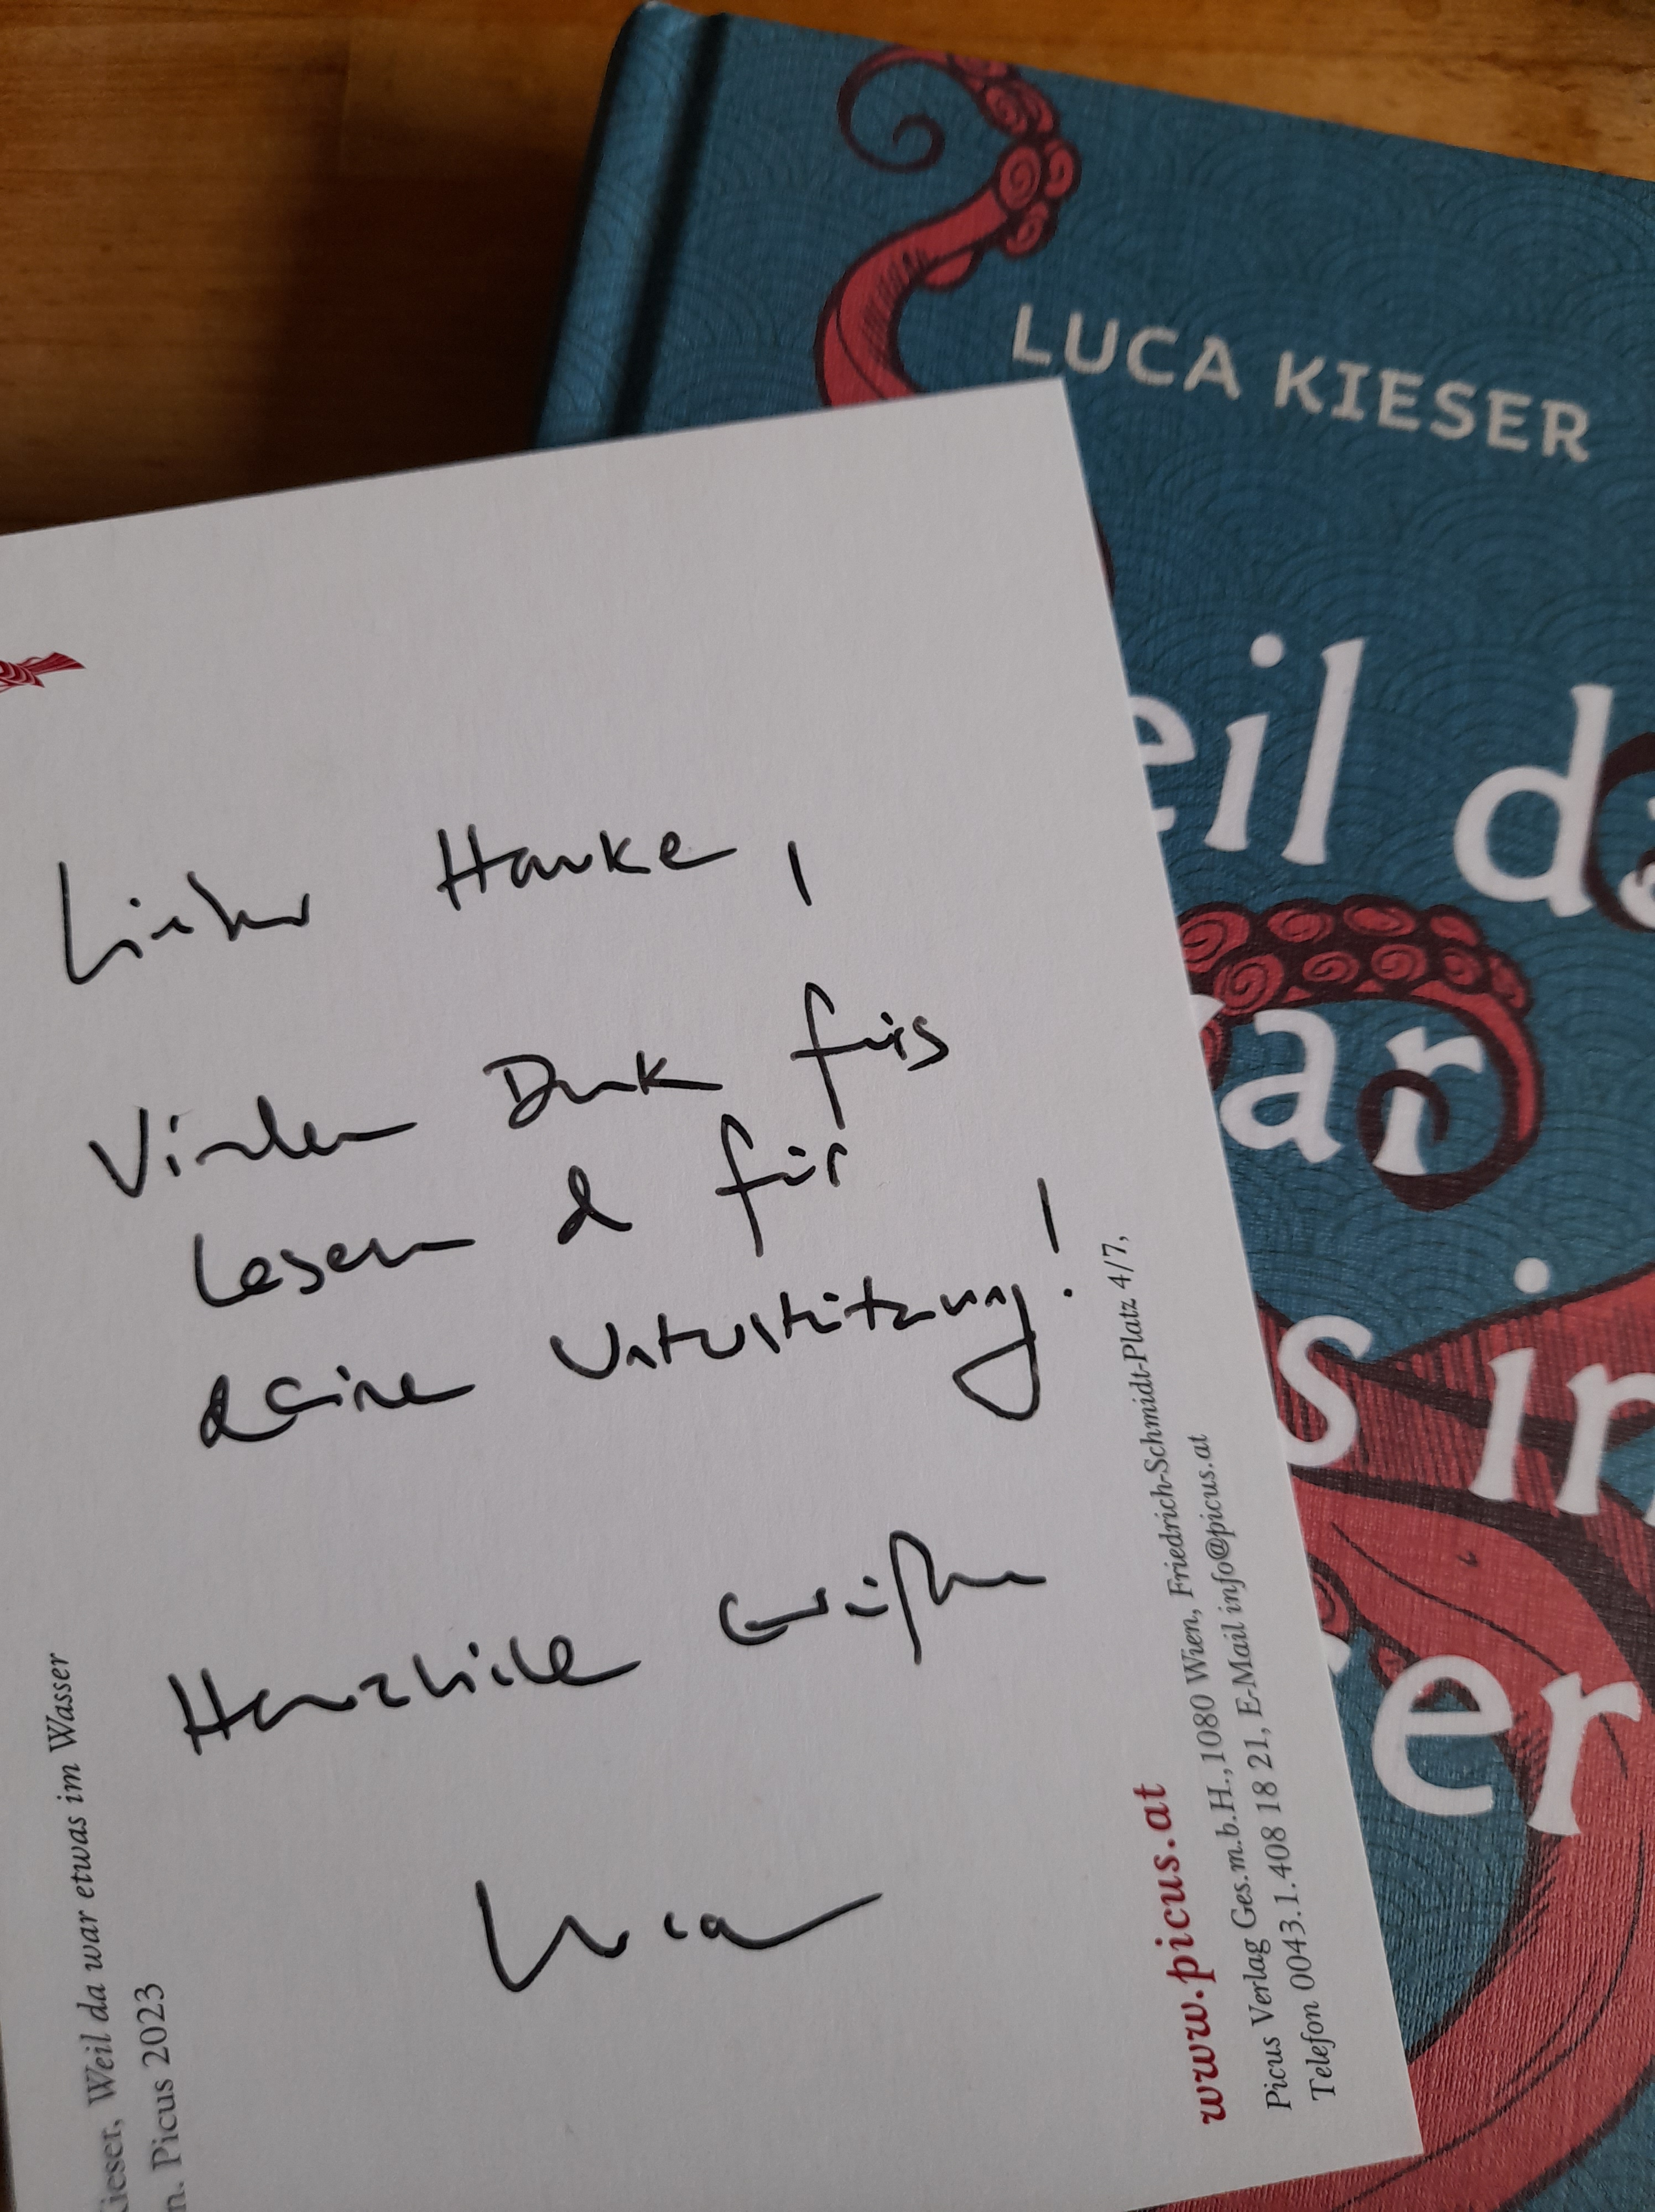 LUCA KIESER
eil da
ar
s im
er
Lieber Hauke,
Vielen Dank fürs
Lesen & für
deine Unterstützung!
Herzliche Grüße
Luca
Kieser, Weil da war etwas im Wasser
n. Picus 2023
www.picus.at
Picus Verlag Ges.m.b.H., 1080 Wien, Friedrich-Schmidt-Platz 4/7,
Telefon 0043.1.408 18 21, E-Mail info@picus.at